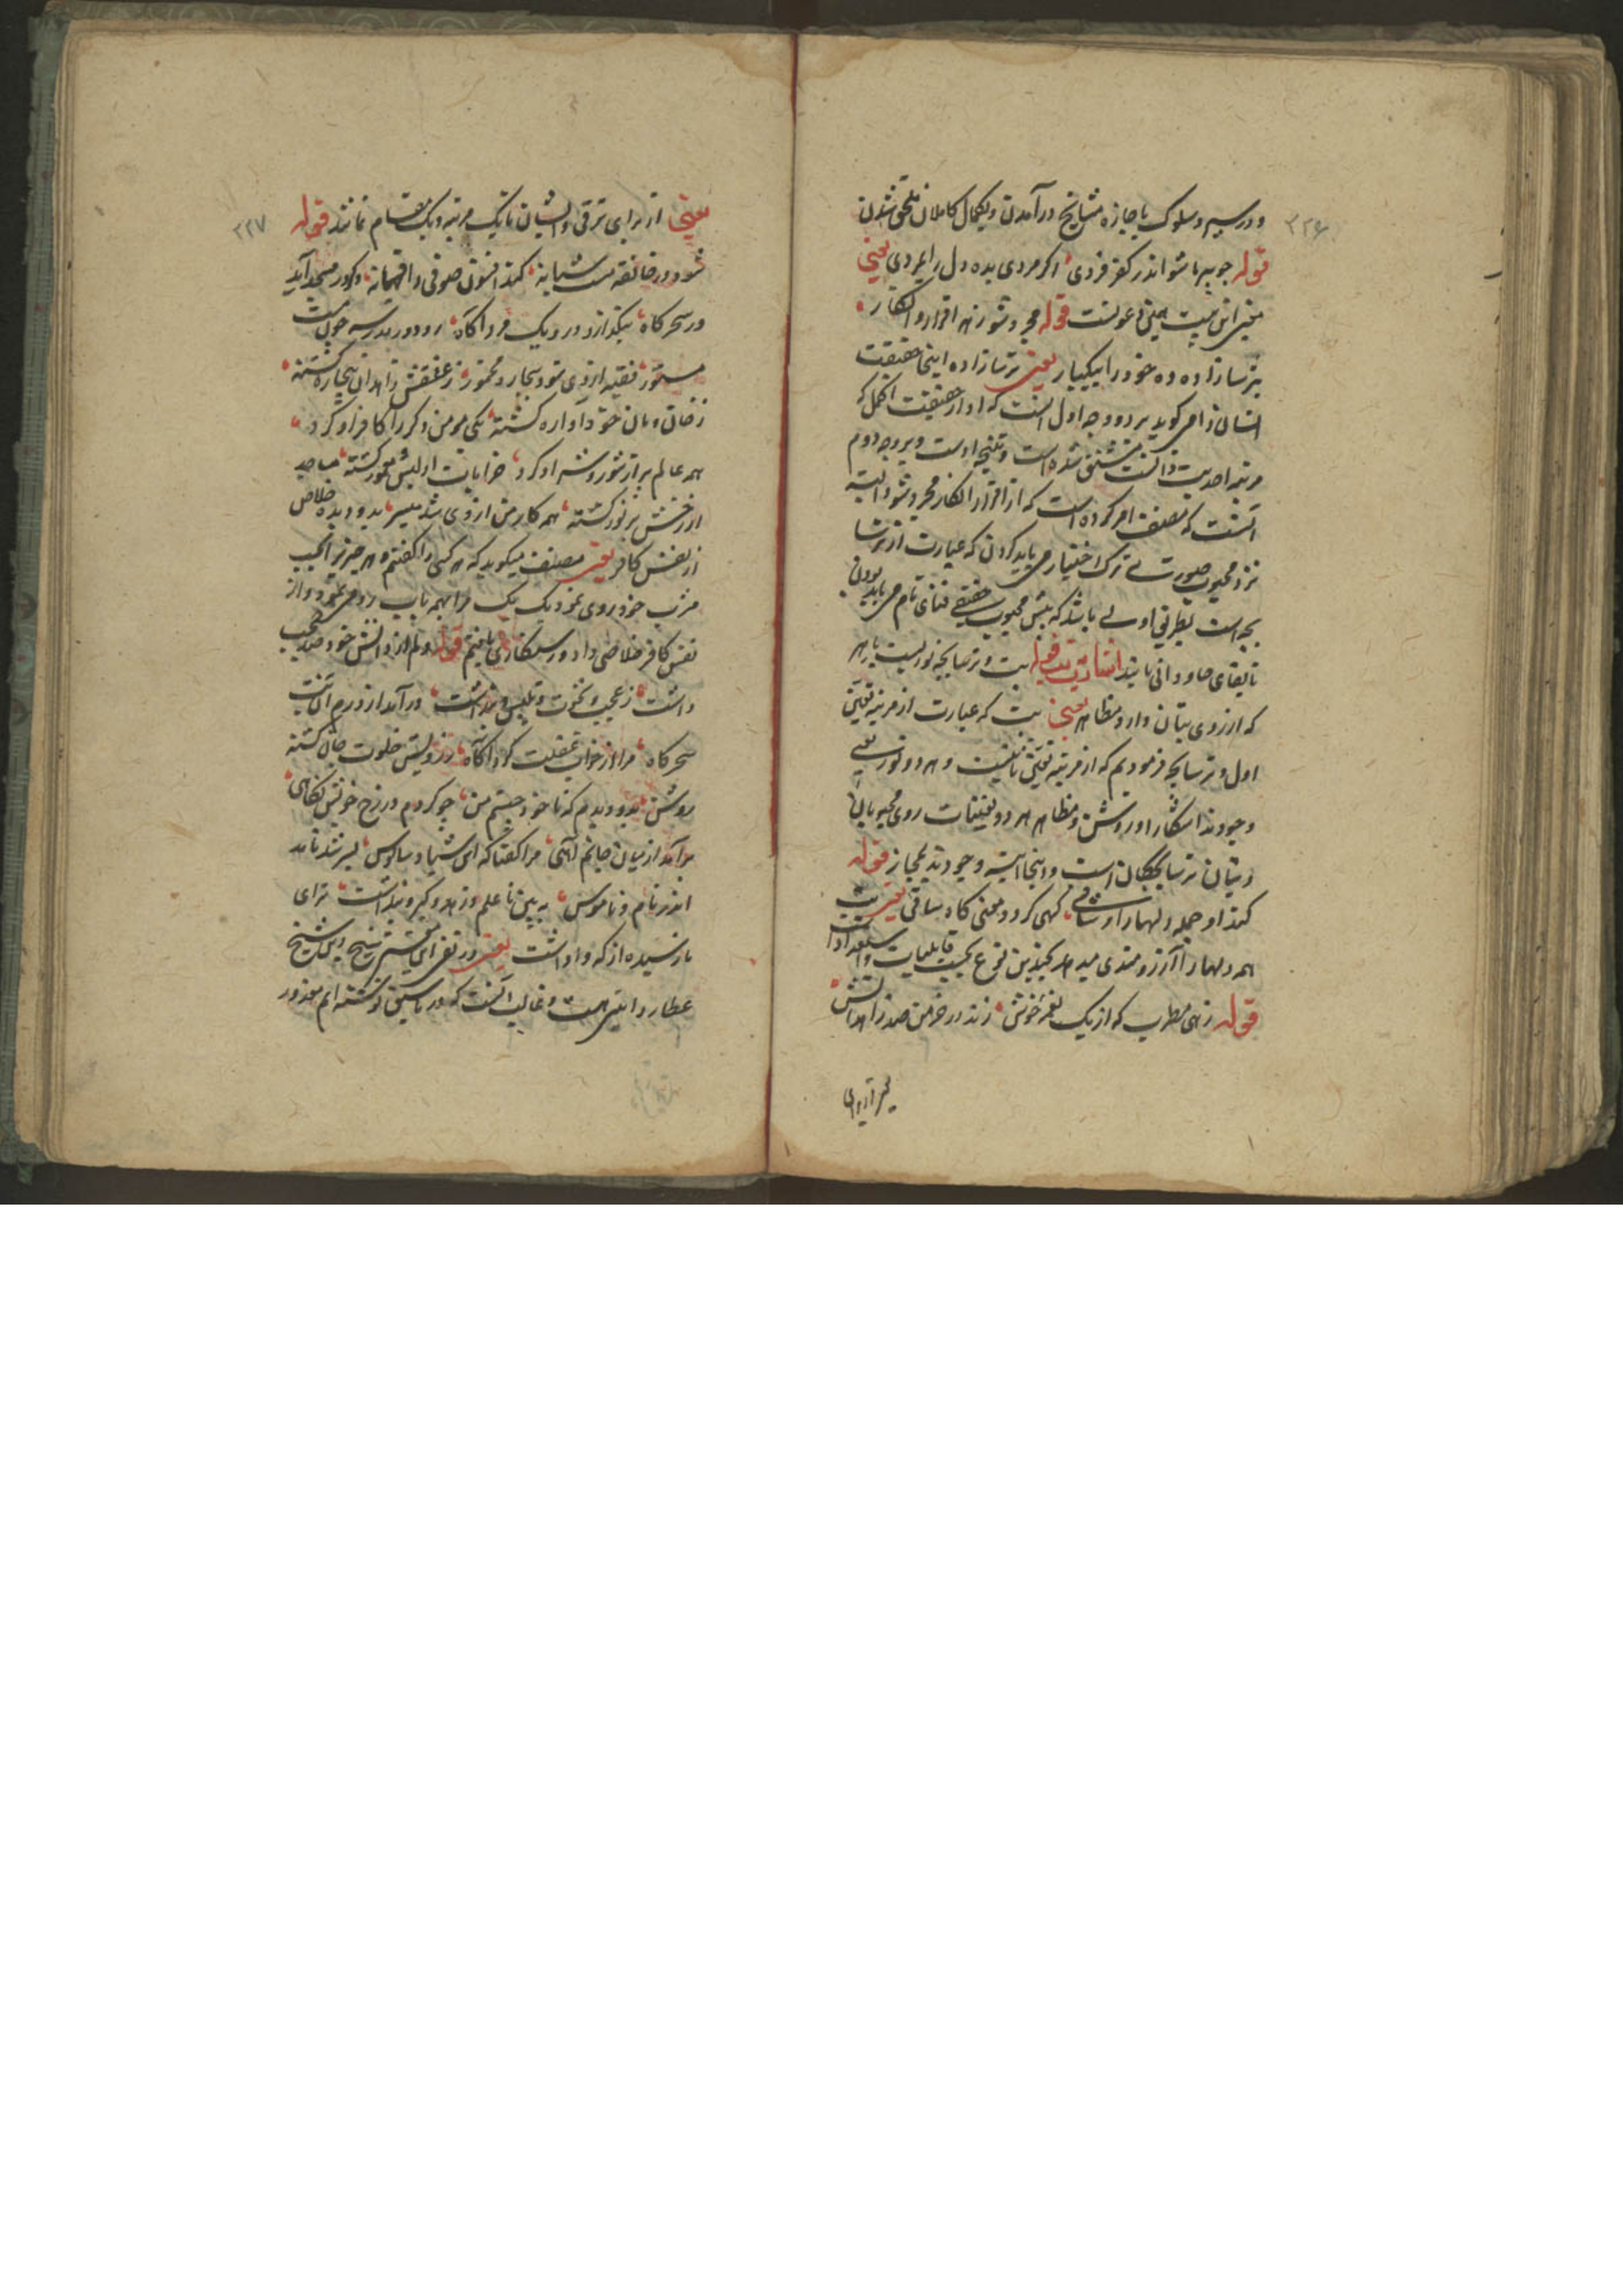 ۳۳۶
و در سیر و سلوک باجازه مشایخ در آمدن و بکمال کاملان ملحق شدن
قوله چو پیر ما شو اندر کفر فردی اگر مردی بده دل را بمردی یعنی
معنی این بیت همین دعوتست قوله مجرد شو ز هر اقرار و انکار
بترسازاده ده خود را بیکبار یعنی ترسازاده اینجا حقیقت
انسان را می گوید بر دو وجه اول آنست که او از حقیقت اکمل که
مرتبه احدیت ذاتست مشتق شده است و نتیجه اوست و بر وجه دوم
آنست که مصنف امر کرده است که از اقرار انکار مجرد شو البته
نزد محبوب صورت ترک اختیار می باید کردن که عبارت از ترسا
بچه است بطریق اولی باشد که پیش محبوب حقیقی فنای تام می باید بودن
تا بقای جاودانی یابند قوله بت و ترسابچه نوریست باهر
که از روی بتان دارد مظاهر یعنی بت که عبارت از مرتبه تعین
اول و ترسابچه فرمودیم که از مرتبه تعین ثانیست و هر دو نور یعنی
وجودند آشکارا و روشن و مظاهر هر دو تعینات روی محبوبان
و بتان ترسابچگان است و اینجا وجودند بمجاز قوله
کند او جمله دلها را وثاقی گهی گردد مغنی گاه ساقی یعنی بت
همه دلها را آرزومندی میدهد بچندین نوع بحسب قابلیات و استعدادات
قوله زهی مطرب که از یک نغمه خوش زند در خرمن صد زاهد آتش
۳۳۷
یعنی از برای ترقی و ایشان تا یک مرتبه و یک مقام نمانند قوله
شود در خانقه مست شبانه کند افسون صوفی را فسانه وگر در مسجد آید
در سحرگاه بنگذارد درو یک مرد آگاه رود در مدرسه چون مست
مستور فقیه از وی شود بیچاره مخمور ز عشقش زاهدان بیچاره گشته
ز خان و مان خود آواره گشته یکی مومن دگر را کافر او کرد
همه عالم پر از شور و شر او کرد خرابات از لبش معمور گشته مساجد
از رخش پرنور گشته همه کار من از وی شد میسر بدو دیدم خلاص
از نفس کافر یعنی مصنف میگوید که هر کسی را گفتم و هر چیز بحسب
مشرب خود روی نمود یک یک مرا بهمه باب روی نمود و از
نفس کافر خلاصی داد و رستگاری یافتم قوله دلم از دانش خود صد حجب
داشت ز عجب و نخوت و تلبیس و پنداشت درآمد از درم آن بت
سحرگاه مرا از خواب غفلت کرد آگاه ز رویش خلوت جان گشته
روشن بدو دیدم که تا خود چیستم من چو کردم در رخ خوبش نگاهی
برآمد از میان جانم آهی مرا گفتا که ای شیاد سالوس بسر شد عمرت
اندر نام و ناموس ببین تا علم و زهد و کبر و پنداشت ترا ای
نارسیده از که واداشت یعنی در تفرای این شیخ
عطار و غالب آنست که در پیش نوشته ایم معذور